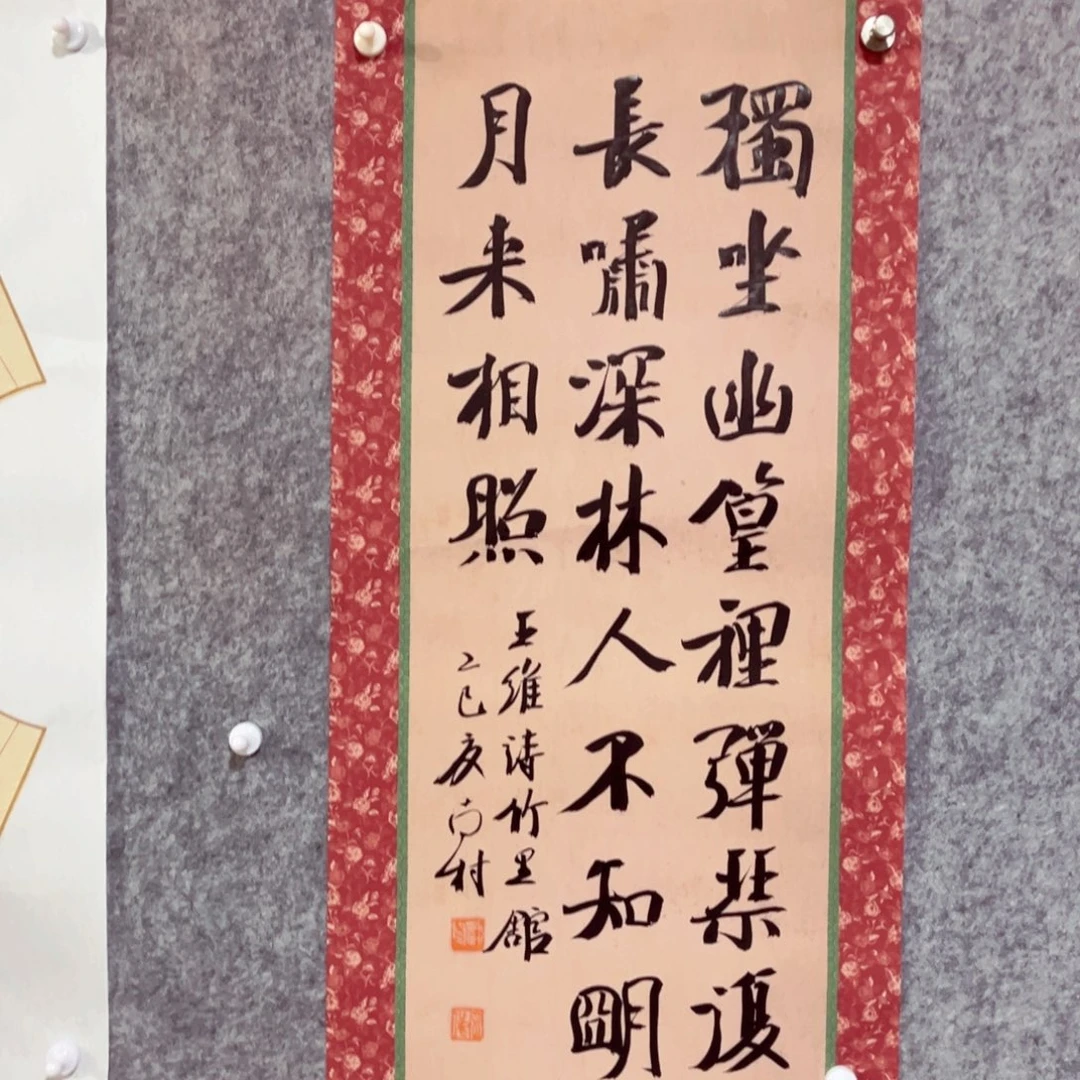 獨坐幽篁裡彈琴復
長嘯深林人不知明
月来相照
王維詩竹里館
乙巳夏尚村